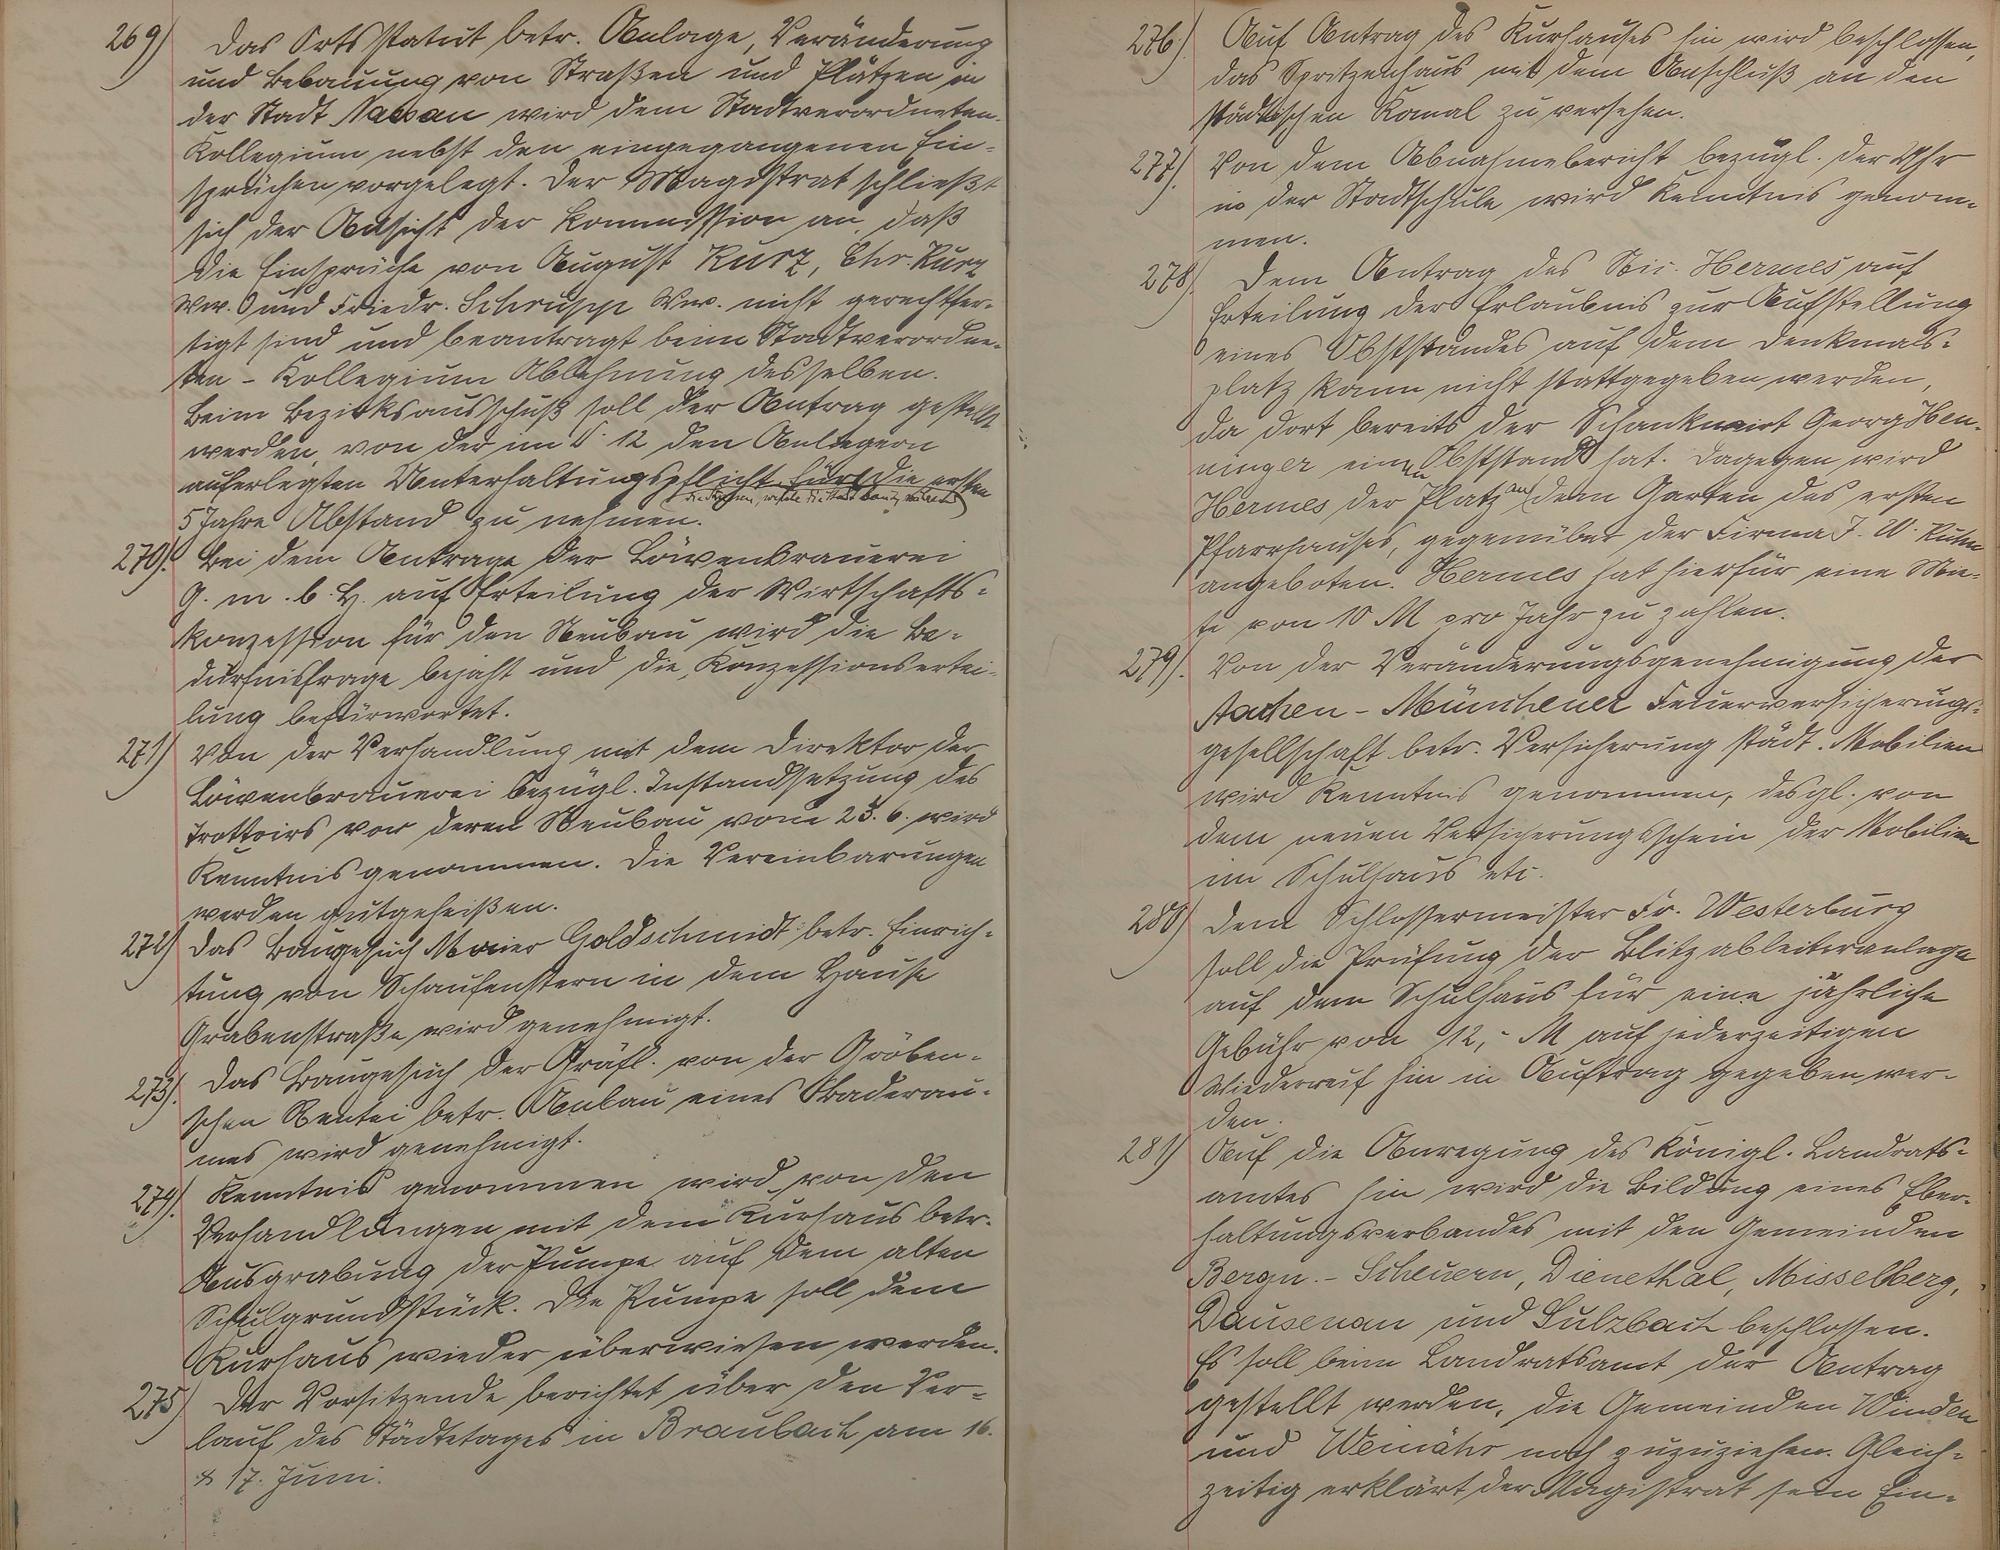 269) Das Ortsstatut betr. Anlage, Veränderung
und Bebauung von Straßen und Plätzen in
der Stadt Nassau wird dem Stadtverordneten-
Kollegium nebst den eingegangenen Ein-
sprüchen vorgelegt. Der Magistrat schließt
sich der Ansicht der Kommission an, daß
die Einsprüche von August Kurz, Chr. Kurz
Ww. und Friedr. Schrupp Ww. nicht gerechtfer-
tigt sind und beantragt beim Stadtverordne-
ten-Kollegium Ablehnung desselben.
Beim Bezirksausschuß soll der Antrag gestellt
werden, von der im § 12 den Anliegern
auferlegten Unterhaltungspflicht für die ersten
5 Jahre Abstand zu nehmen.
270). Bei dem Antrage der Löwenbrauerei
G. m. b. H. auf Erteilung der Wirtschafts-
konzession für den Neubau wird die Be-
dürfnisfrage bejaht und die Konzessionsertei-
lung befürwortet.
271) Von der Verhandlung mit dem Direktor der
Löwenbrauerei bezügl. Instandsetzung des
Trottoirs vor deren Neubau vom 23. 6. wird
Kenntnis genommen. Die Vereinbarungen
werden gutgeheißen.
272) Das Baugesuch Maier Goldschmidt betr. Einrich-
tung von Schaufenstern in dem Hause
Grabenstraße wird genehmigt.
273). Das Baugesuch der Gräfl. von der Gröben-
schen Rentei betr. Anbau eines Baderau-
mes wird genehmigt.
274). Kenntnis genommen wird von den
Verhandlungen mit dem Kurhaus betr.
Ausgrabung der Pumpe auf dem alten
Schulgrundstück. Die Pumpe soll dem
Kurhaus wieder überwiesen werden.
275) Der Vorsitzende berichtet über den Ver-
lauf des Städtetages in Braubach am 16.
& 17. Juni.
276). Auf Antrag des Kurhauses hin wird beschlossen,
das Spritzenhaus mit dem Anschluß an den
städtischen Kanal zu versehen.
277). Von dem Abnahmebericht bezügl. der Uhr
in der Stadtschule wird Kenntnis genom-
men.
278) Dem Antrag des Nic. Hermes auf
Erteilung der Erlaubnis zur Aufstellung
eines Obststandes auf dem Denkmals-
platz kann nicht stattgegeben werden,
da dort bereits der Schankwirt Georg Hen-
ninger einen Obststand hat. Dagegen wird
Hermes der Platz an dem Garten des ersten
Pfarrhauses, gegenüber der Firma J. W. Kuhn
angeboten. Hermes hat hierfür eine Mie-
te von 10 M pro Jahr zu zahlen.
279). Von der Veränderungsgenehmigung der
Aachen-Münchener Feuerversicherungs-
gesellschaft betr. Versicherung städt. Mobilien
wird Kenntnis genommen, desgl. von
dem neuen Versicherungsschein der Mobilien
im Schulhaus etc.
280) Dem Schlossermeister Fr. Westerburg
soll die Prüfung der Blitzableiteranlage
auf dem Schulhaus für eine jährliche
Gebühr von 12,- M auf jederzeitigen
Wiederruf hin in Auftrag gegeben wer-
den.
281) Auf die Anregung des Königl. Landrats-
amtes hin wird die Bildung eines Eber-
haltungsverbandes mit den Gemeinden
Bergn.-Scheuern, Dienethal, Misselberg,
Dausenau und Sulzbach beschlossen.
Es soll beim Landratsamt der Antrag
gestellt werden, die Gemeinden Winden
und Weinähr noch zuzuziehen. Gleich-
zeitig erklärt der Magistrat sein Ein-